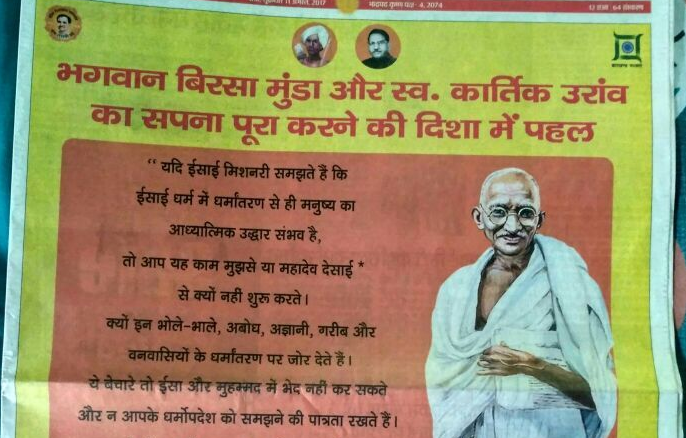 11 अगस्त, 2017
भाद्रपद कृष्ण पक्ष- 4, 2074
भगवान बिरसा मुंडा और स्व. कार्तिक उरांव
का सपना पूरा करने की दिशा में पहल
“ यदि ईसाई मिशनरी समझते हैं कि
ईसाई धर्म में धर्मांतरण से ही मनुष्य का
आध्यात्मिक उद्धार संभव है,
तो आप यह काम मुझसे या महादेव देसाई *
से क्यों नहीं शुरू करते।
क्यों इन भोले-भाले, अबोध, अज्ञानी, गरीब और
वनवासियों के धर्मांतरण पर जोर देते हैं।
ये बेचारे तो ईसा और मुहम्मद में भेद नहीं कर सकते
और न आपके धर्मोपदेश को समझने की पात्रता रखते हैं।